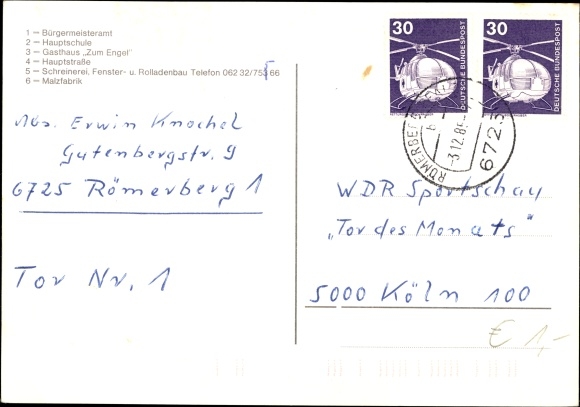 1 — Bürgermeisteramt
2 — Hauptschule
3 — Gasthaus „Zum Engel"
4 — Hauptstraße
5 — Schreinerei, Fenster- u. Rolladenbau Telefon 06232/75366
6 — Malzfabrik
Abs. Erwin Knochel
Gutenbergstr. 9
6725 Römerberg 1
Tor Nr. 1
30
DEUTSCHE BUNDESPOST
30
DEUTSCHE BUNDESPOST
RÖMERBERG
-3.12.8
672
WDR Sportschau
„Tor des Monats"
5000 Köln 100
€ 1,-